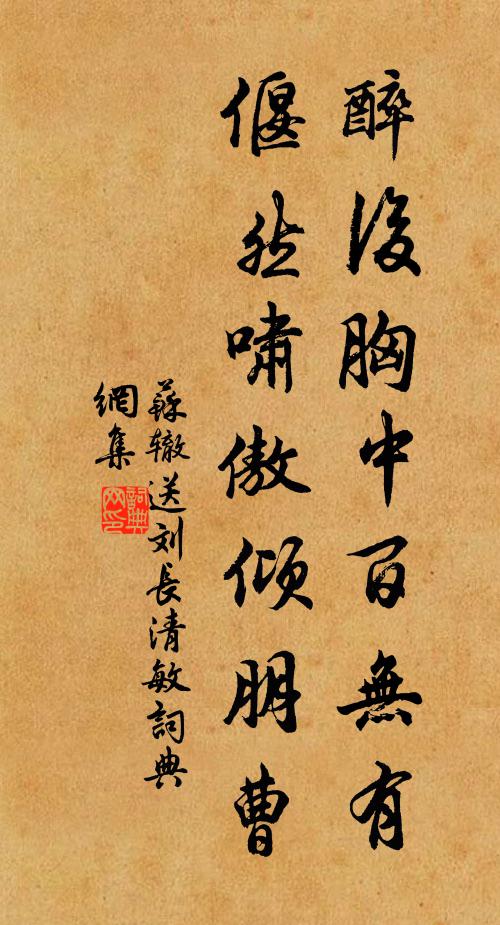 醉後胸中百無有
偃然嘯傲傾朋曹
蘇辙送刘長清敏詞典
網集
詞典网印